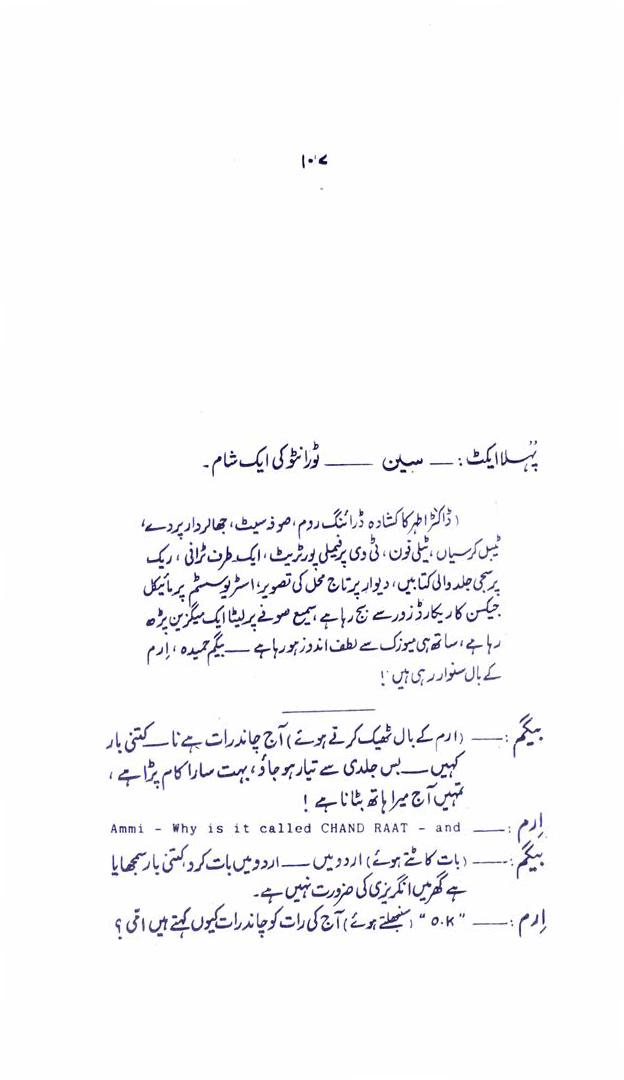 ۱۰۷
پہلا ایکٹ :— سین —— ٹورانٹو کی ایک شام۔
(ڈاکٹر اظہر کا کشادہ ڈرائنگ روم، صوفہ سیٹ، جھالردار پردے،
ٹیبل کرسیاں، ٹیلی فون، ٹی وی پر فیملی پورٹریٹ، ایک طرف ٹرالی، ریک
پر سجی جلد والی کتابیں، دیوار پر تاج محل کی تصویر، اسٹریو سسٹم پر مائیکل
جیکسن کا ریکارڈ زور سے بج رہا ہے، سمیع صوفے پر لیٹا ایک میگزین پڑھ
رہا ہے، ساتھ ہی میوزک سے لطف اندوز ہو رہا ہے —— بیگم حمیدہ، اِرم
کے بال سنوار رہی ہیں!
بیگم :—— (ارم کے بال ٹھیک کرتے ہوئے) آج چاند رات ہے نا —— کتنی بار
کہیں —— بس جلدی سے تیار ہو جاؤ، بہت سارا کام پڑا ہے،
تمہیں آج میرا ہاتھ بٹانا ہے!
اِرم :—— Ammi - Why is it called CHAND RAAT - and
بیگم :—— (بات کاٹتے ہوئے) اردو میں —— اردو میں بات کرو، کتنی بار سمجھایا
ہے گھر میں انگریزی کی ضرورت نہیں ہے۔
اِرم :—— "O.K" (سنبھلتے ہوئے) آج کی رات کو چاند رات کیوں کہتے ہیں امّی؟